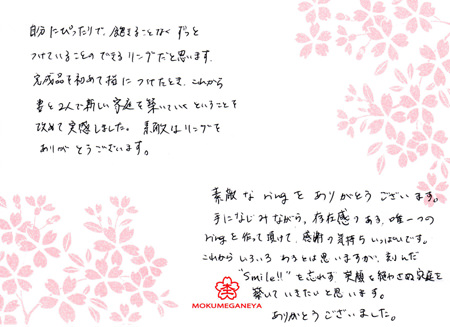 自分にぴったりで、飽きることなく ずっと
つけていることのできるリングだと思います。
完成品を初めて指につけたとき、これから
妻と2人で新しい家庭を築いていく ということを
改めて実感しました。素敵なリングを
ありがとうございます。
素敵な ringを ありがとうございます。
手になじみながら、存在感のある、唯一つの
ringを作って頂けて、感謝の気持ちいっぱいです。
これから いろいろ あるとは思いますが、刻んだ
"Smile!!"を忘れず 笑顔を絶やさぬ家庭を
築いて いきたいと思います。
ありがとうございました。
MOKUMEGANEYA